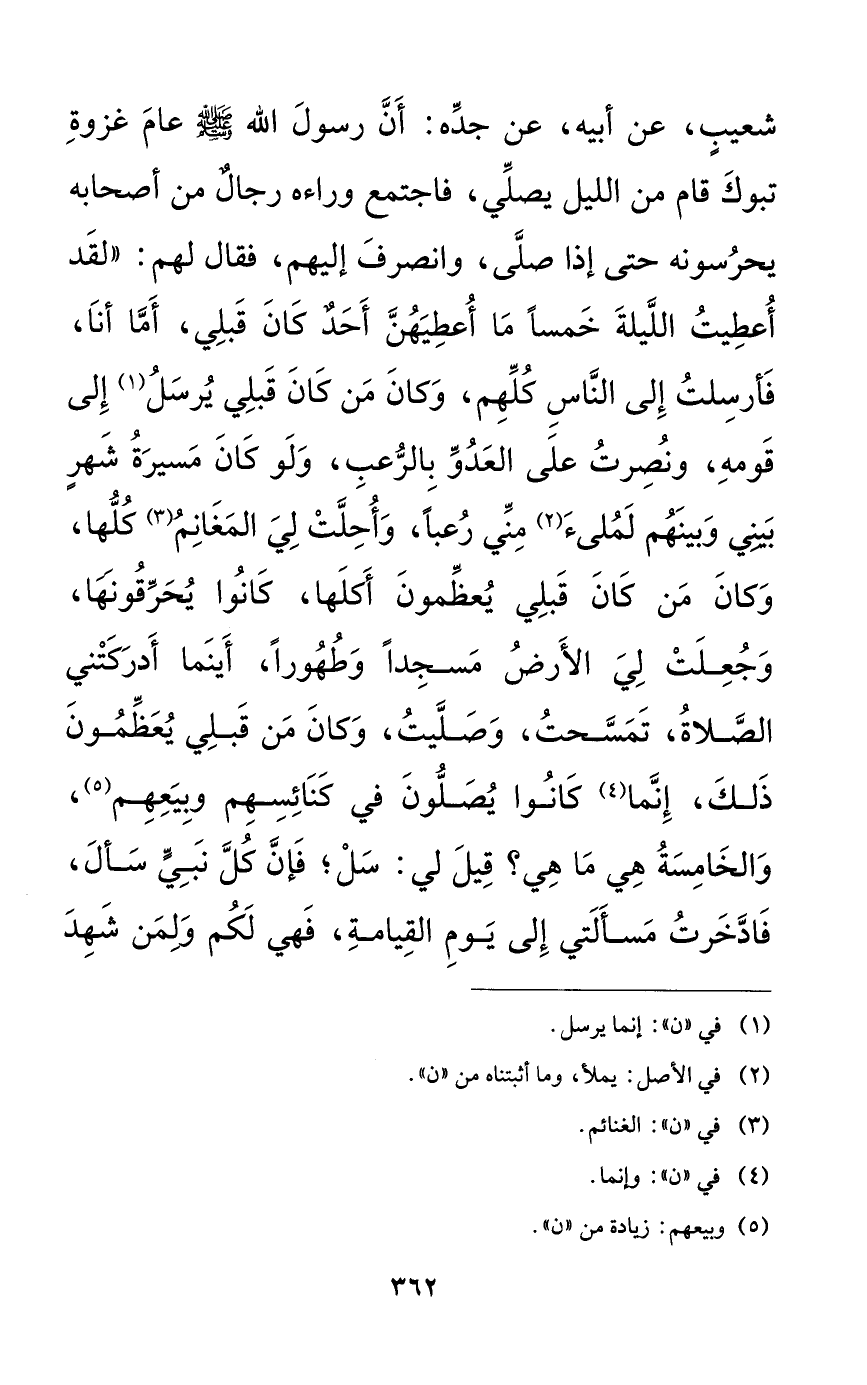 شعيبٍ، عن أبيه، عن جدِّه: أَنَّ رسولَ الله ﷺ عامَ غزوةِ
تبوكَ قام من الليل يصلِّي، فاجتمع وراءه رجالٌ من أصحابه
يحرُسونه حتى إذا صلَّى، وانصرفَ إليهم، فقال لهم: «لقَد
أُعطِيتُ اللَّيلةَ خَمساً مَا أُعطِيَهُنَّ أَحَدٌ كَانَ قَبلِي، أَمَّا أنَا،
فَأرسِلتُ إِلى النَّاسِ كُلِّهِم، وَكانَ مَن كَانَ قَبلِي يُرسَلُ(١) إِلى
قَومهِ، ونُصِرتُ علَى العَدُوِّ بِالرُّعبِ، وَلَو كَانَ مَسيرَةُ شَهرٍ
بَينِي وَبينَهُم لَمُلىءَ(٢) مِنِّي رُعباً، وَأُحِلَّتْ لِيَ المَغَانِمُ(٣) كُلُّها،
وَكانَ مَن كَانَ قَبلِي يُعظِّمونَ أَكلَها، كَانُوا يُحَرِّقُونَهَا،
وَجُعِلَتْ لِيَ الأَرضُ مَسـجِداً وَطُهُوراً، أَينَما أَدرَكَتْني
الصَّـلاةُ، تَمَسَّـحتُ، وَصَـلَّيتُ، وَكانَ مَن قَبـلِي يُعَظِّمُـونَ
ذَلـكَ، إِنَّما(٤) كَانُـوا يُصَـلُّونَ في كَنَائِسِـهِم وبِيَعِهِـم(٥)،
وَالخَامِسَةُ هِي مَا هِي؟ قِيلَ لي: سَلْ؛ فَإنَّ كُلَّ نَبـيٍّ سَـألَ،
فَادَّخَرتُ مَسـألَتي إِلى يَـومِ القِيامـةِ، فَهي لَكُم وَلِمَن شَهِدَ
(١) في «ن»: إنما يرسل.
(٢) في الأصل: يملأ، وما أثبتناه من «ن».
(٣) في «ن»: الغنائم.
(٤) في «ن»: وإنما.
(٥) وبيعهم: زيادة من «ن».
٣٦٢